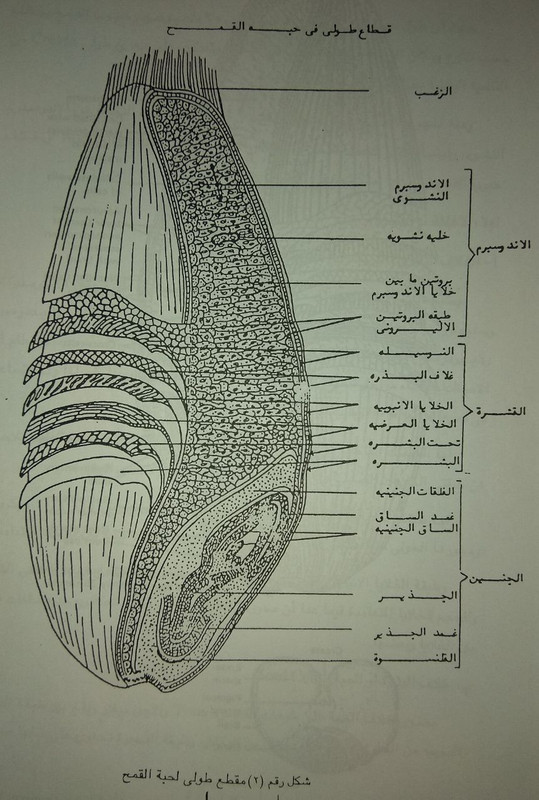 قطاع طولى فى حبه القمح
الزغب
الاندوسبرم
النشوى
خليه نشويه
بروتين ما بين
خلايا الاندوسبرم
طبقه البروتين
الاليرونى
الاندوسبرم
النوسيله
غلاف البذره
الخلايا الانبوبيه
الخلايا العرضيه
تحت البشره
البشره
القشرة
الفلقات الجنينيه
غمد الساق
الساق الجنينيه
الجذير
غمد الجذير
القلنسوة
الجنين
شكل رقم (٢) مقطع طولى لحبة القمح